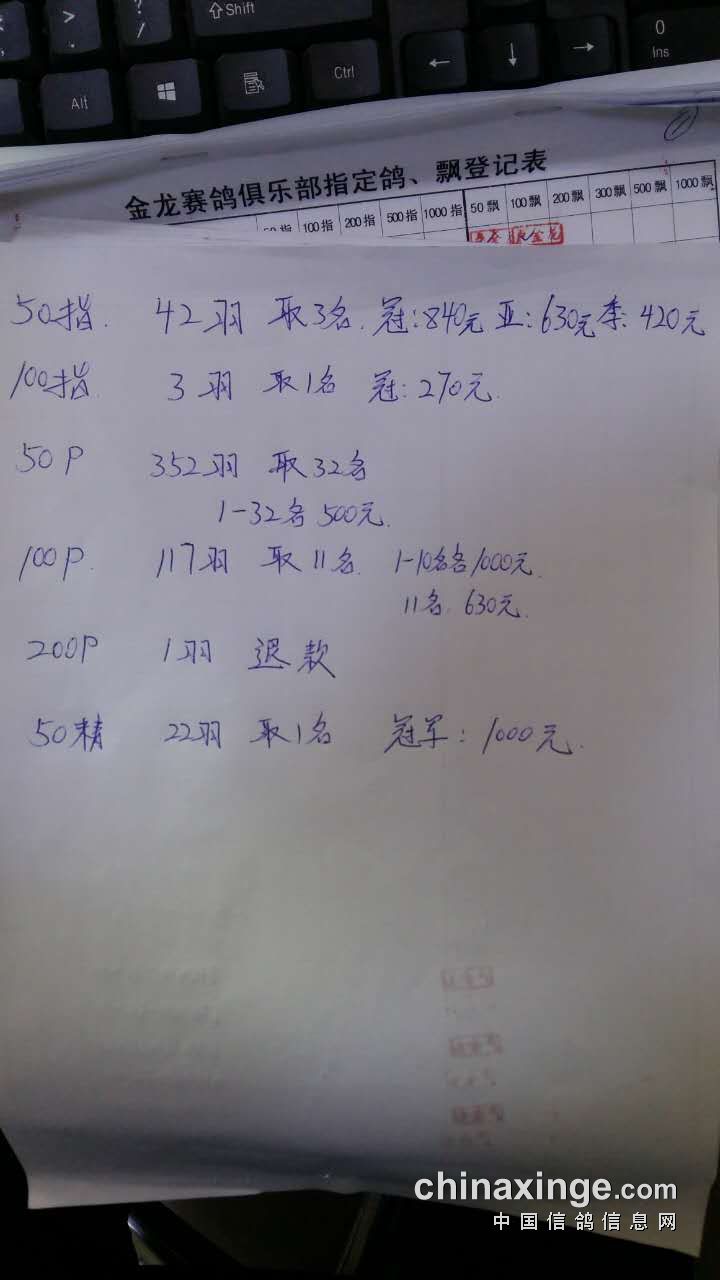 > ? / ⇧Shift
Alt Ctrl ← ↓ → 0 Ins
金龙赛鸽俱乐部指定鸽、飘登记表
100指 200指 500指 1000指 50飘 100飘 200飘 300飘 500飘 1000飘
50指. 42羽 取3名. 冠:840元 亚:630元 季:420元
100指. 3羽 取1名 冠:270元.
50P 352羽 取32名
1-32名 500元.
100P. 117羽 取11名. 1-10名各1000元.
11名. 630元.
200P 1羽 退款
50精 22羽 取1名 冠军:1000元.
chinaxinge.com
中国信鸽信息网